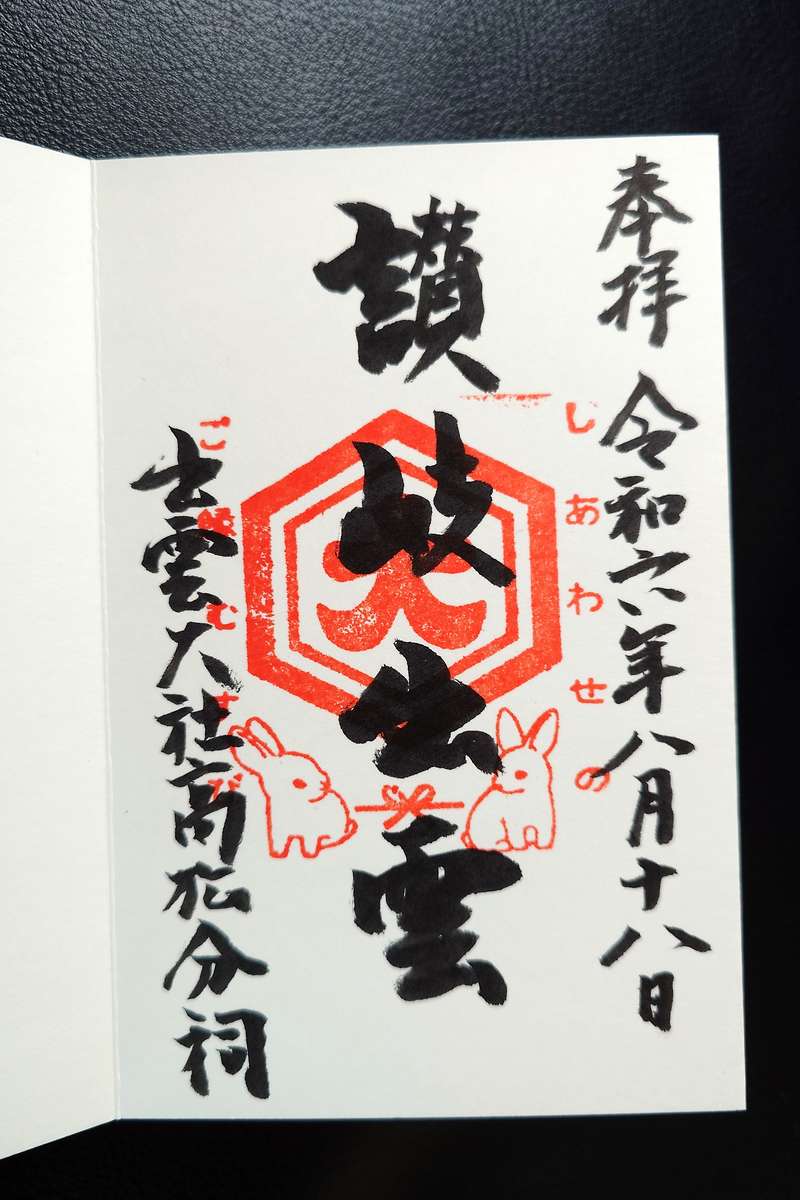 奉拝 令和六年八月十八日
しあわせの
讃岐出雲
ご縁むすび
出雲大社高松分祠